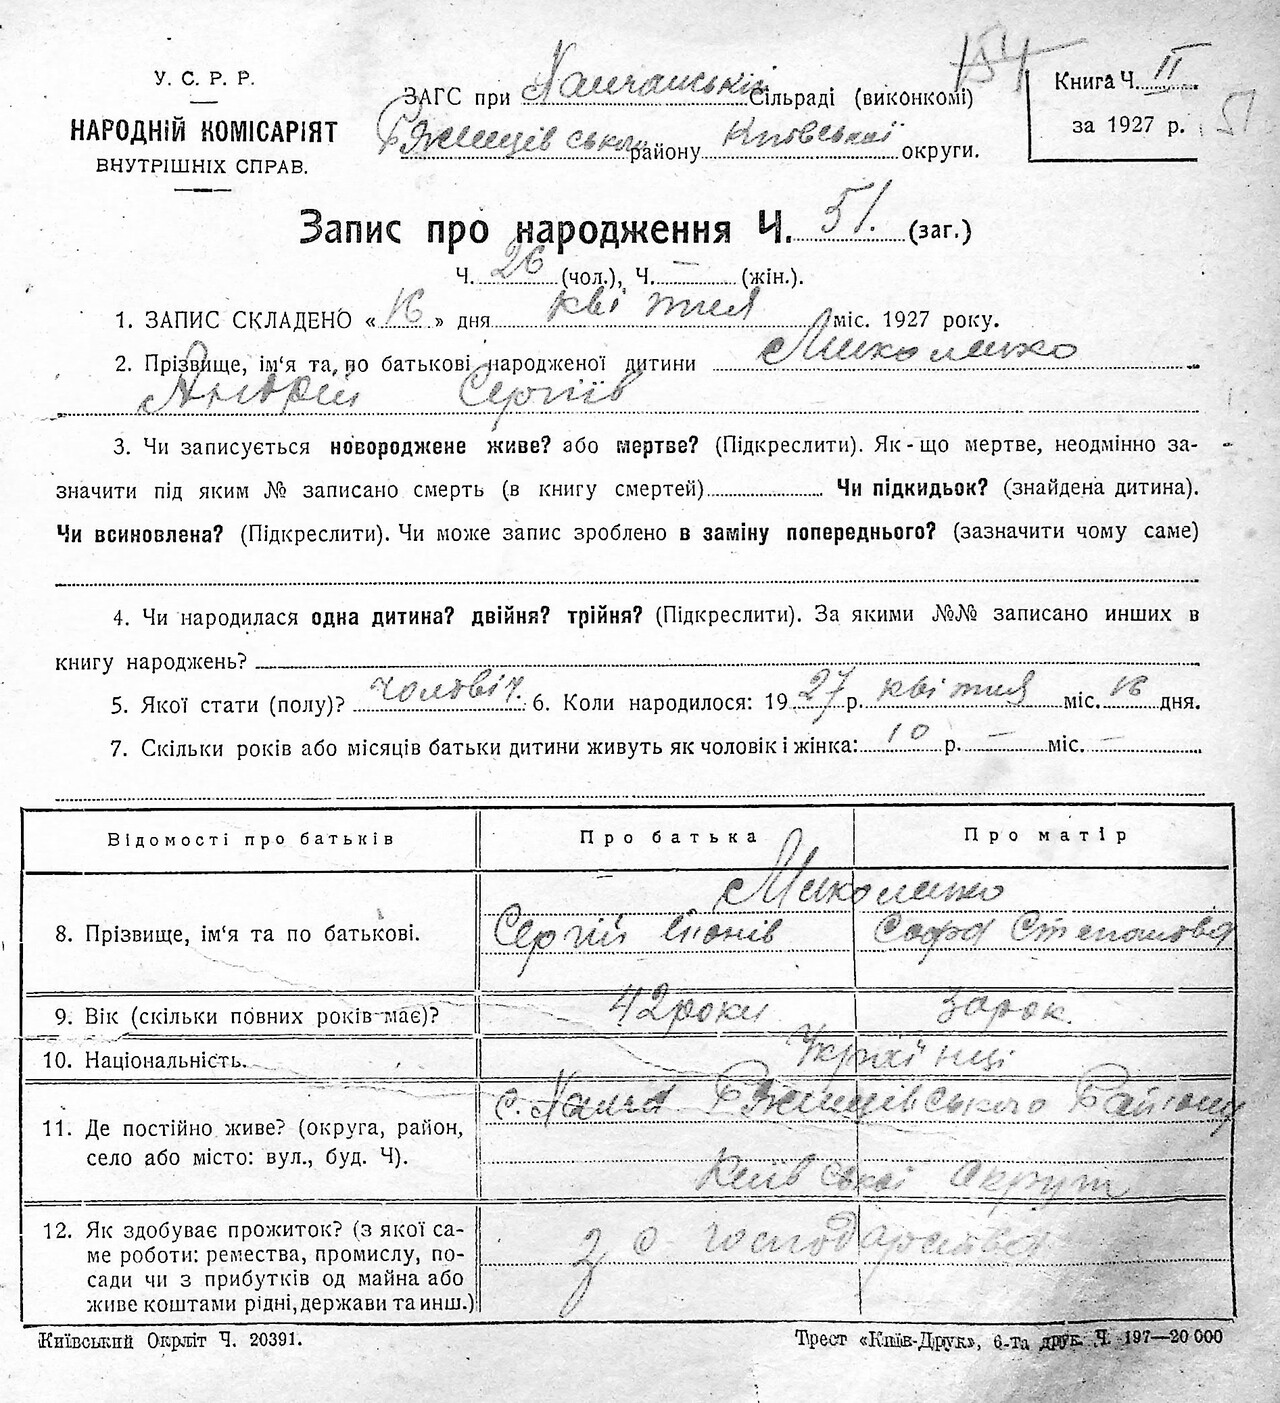 154
У. С. Р. Р.
НАРОДНІЙ КОМІСАРІЯТ
ВНУТРІШНІХ СПРАВ.
ЗАГС при Халчанській Сільраді (виконкомі)
Ржищівського району Київської округи.
Книга Ч. II
за 1927 р.
51
Запис про народження Ч. 51. (заг.)
Ч. 26 (чол.), Ч. — (жін.).
1. ЗАПИС СКЛАДЕНО « 16 » дня квітня міс. 1927 року.
2. Прізвище, ім'я та, по батькові народженої дитини Миколенко
Андрій Сергіїв
3. Чи записується новороджене живе? або мертве? (Підкреслити). Як-що мертве, неодмінно за-
значити під яким № записано смерть (в книгу смертей) Чи підкидьок? (знайдена дитина).
Чи всиновлена? (Підкреслити). Чи може запис зроблено в заміну попереднього? (зазначити чому саме)
4. Чи народилася одна дитина? двійня? трійня? (Підкреслити). За якими №№ записано инших в
книгу народжень?
5. Якої стати (полу)? чоловіч. 6. Коли народилося: 19 27 р. квітня міс. 16 дня.
7. Скільки років або місяців батьки дитини живуть як чоловік і жінка: 10 р. — міс. —
Відомості про батьків Про батька Про матір
Миколенко
8. Прізвище, ім'я та по батькові. Сергій Софія Степанова
9. Вік (скільки повних років має)? 42 роки
10. Національність. Українці
11. Де постійно живе? (округа, район, с. Халча Ржищівського Району
село або місто: вул., буд. Ч). Київської округи
12. Як здобуває прожиток? (з якої са-
ме роботи: ремества, промислу, по- з с. господарства
сади чи з прибутків од майна або
живе коштами рідні, держави та инш.)
Київський Окрліт Ч. 20391. Трест «Київ-Друк», 6-та друк. Ч. 197—20 000